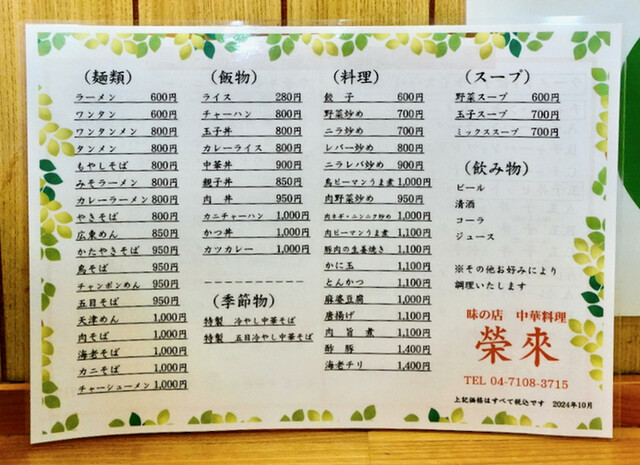 （麺類）
ラーメン 600円
ワンタン 600円
ワンタンメン 800円
タンメン 800円
もやしそば 800円
みそラーメン 800円
カレーラーメン 800円
やきそば 800円
広東めん 850円
かたやきそば 950円
鳥そば 950円
チャンポンめん 950円
五目そば 950円
天津めん 1,000円
肉そば 1,000円
海老そば 1,000円
カニそば 1,000円
チャーシューメン 1,000円
（飯物）
ライス 280円
チャーハン 800円
玉子丼 800円
カレーライス 800円
中華丼 900円
親子丼 850円
肉丼 950円
カニチャーハン 1,000円
かつ丼 1,000円
カツカレー 1,000円
（季節物）
特製 冷やし中華そば
特製 五目冷やし中華そば
（料理）
餃子 600円
野菜炒め 700円
ニラ炒め 700円
レバー炒め 800円
ニラレバ炒め 900円
鳥ピーマンうま煮 1,000円
肉野菜炒め 950円
肉ネギ・ニンニク炒め 1,000円
肉ピーマンうま煮 1,100円
豚肉の生姜焼き 1,100円
かに玉 1,100円
とんかつ 1,100円
麻婆豆腐 1,000円
唐揚げ 1,100円
肉旨煮 1,100円
酢豚 1,400円
海老チリ 1,400円
（スープ）
野菜スープ 600円
玉子スープ 700円
ミックススープ 700円
（飲み物）
ビール
清酒
コーラ
ジュース
※その他お好みにより
調理いたします
味の店 中華料理
榮來
TEL 04-7108-3715
上記価格はすべて税込です 2024年10月